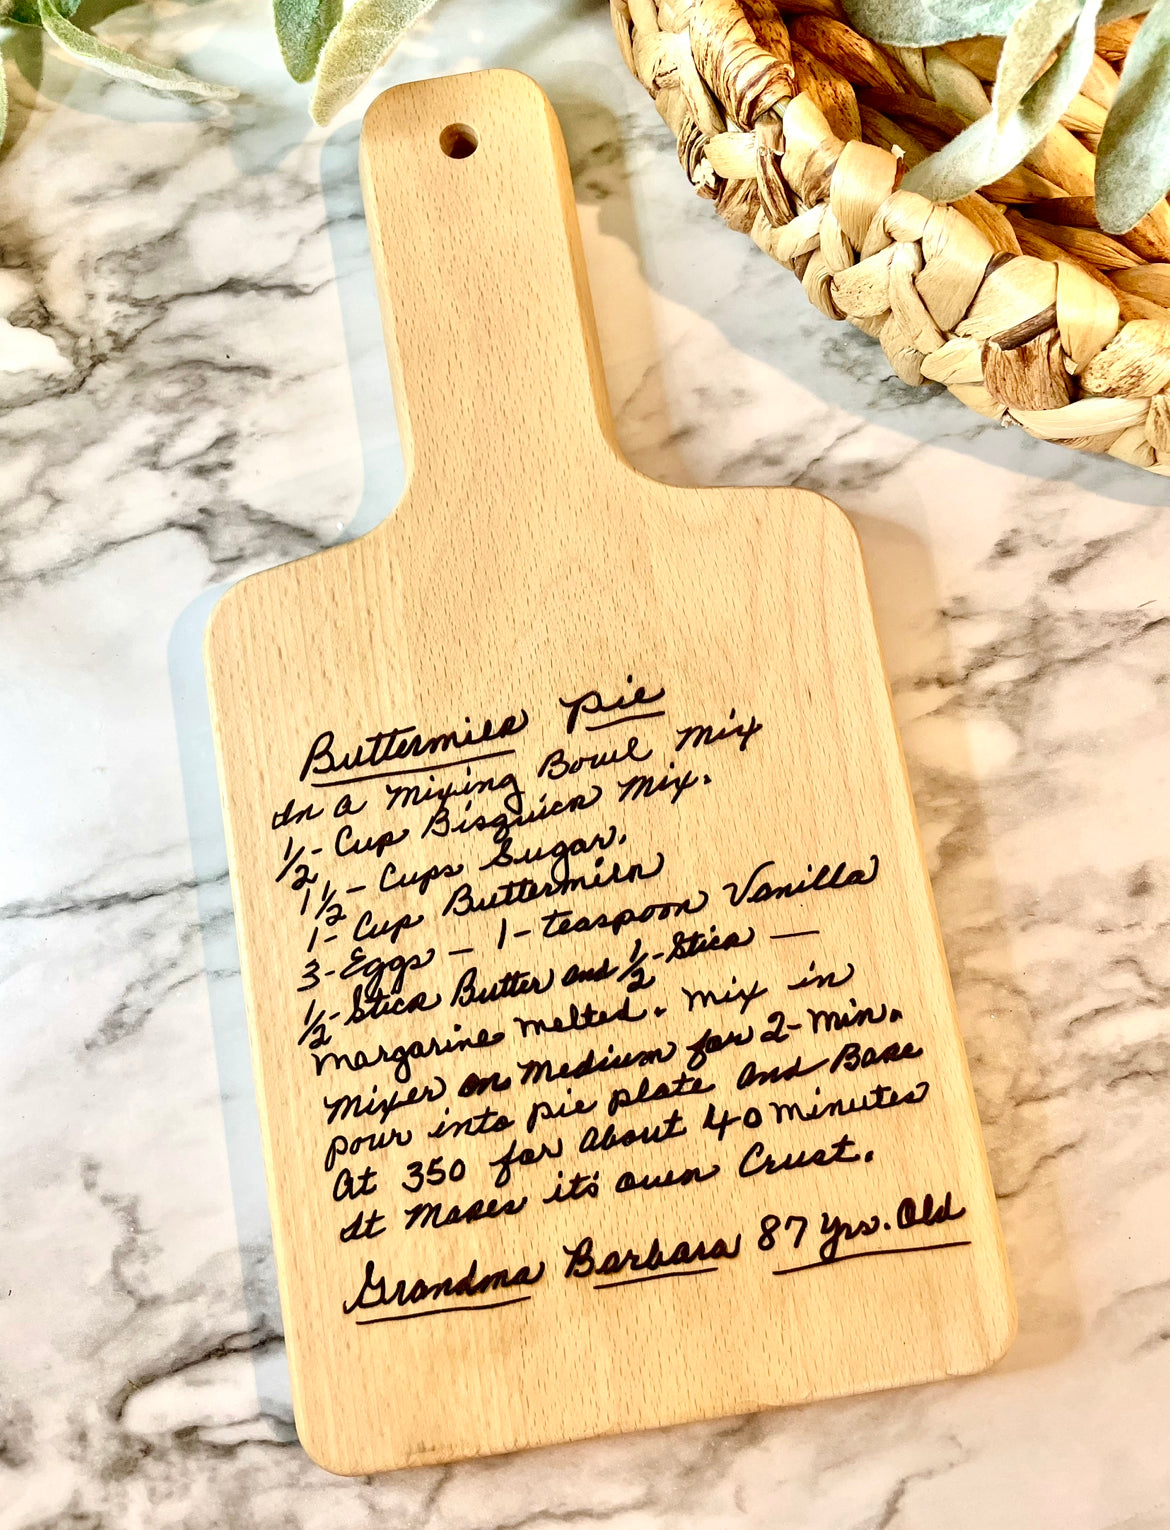 Buttermilk Pie
In A Mixing Bowl Mix
1/2- Cup Bisquick Mix.
1 1/2- Cups Sugar.
1- Cup Buttermilk
3- Eggs - 1- teaspoon Vanilla
1/2- Stick Butter and 1/2- Stick -
Margarine Melted. Mix in
Mixer on Medium for 2- Min.
pour into pie plate And Bake
At 350 for About 40 minutes
It Makes it's own Crust.
Grandma Barbara 87 yrs. Old